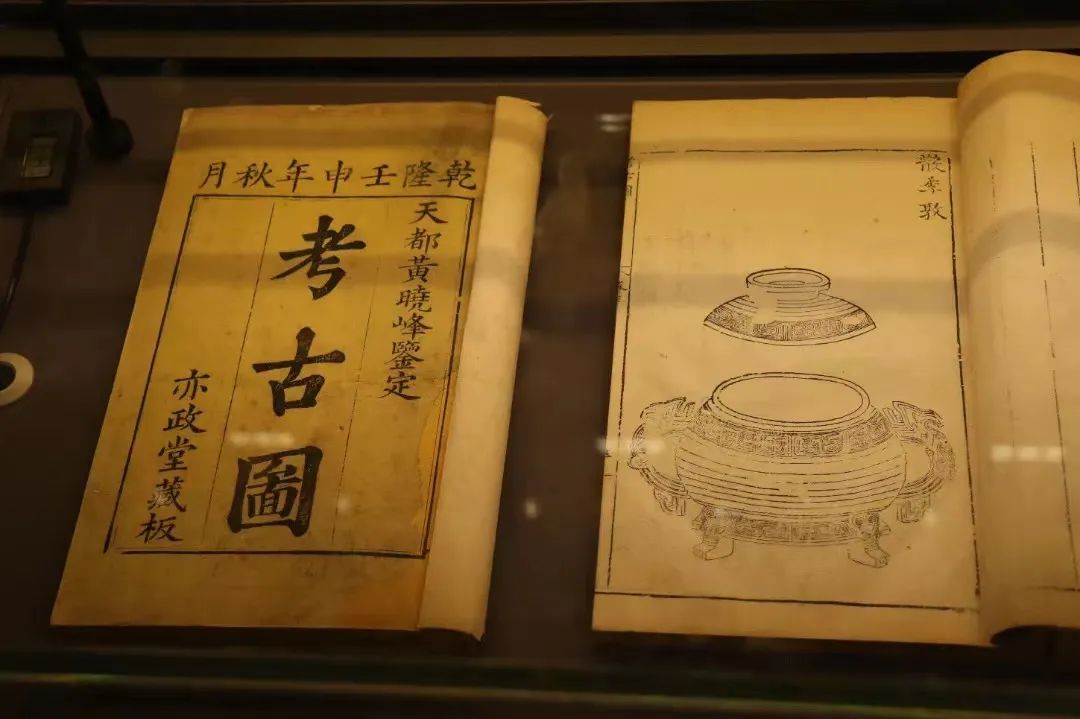 乾隆壬申年秋月
天都黃曉峰鑒定
考古圖
亦政堂藏板
散季敦